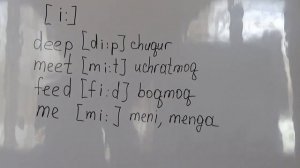 [i:]
deep [di:p] chuqur
meet [mi:t] uchratmoq
feed [fi:d] boqmoq
me [mi:] meni, menga